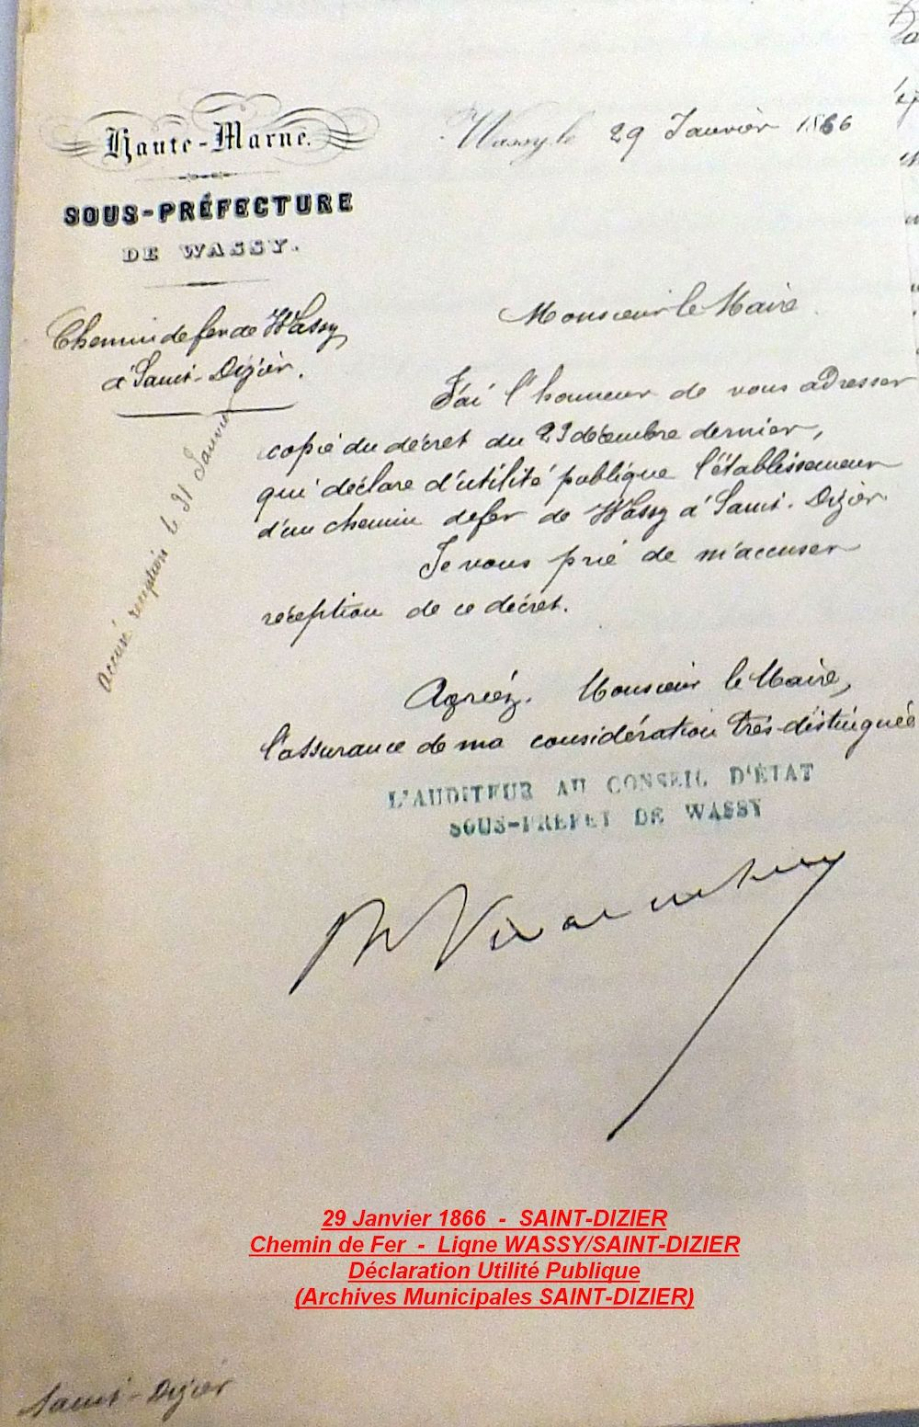 Haute-Marne.
SOUS-PRÉFECTURE
DE WASSY.
Wassy, le 29 Janvier 1866
Chemin de fer de Wassy
à Saint-Dizier.
Accusé réception le 31 Janvier
Monsieur le Maire
J'ai l'honneur de vous adresser
copie du décret du 23 décembre dernier,
qui déclare d'utilité publique l'établissement
d'un chemin de fer de Wassy à Saint-Dizier
Je vous prie de m'accuser
réception de ce décret.
Agréez, Monsieur le Maire,
l'assurance de ma considération très-distinguée
L'AUDITEUR AU CONSEIL D'ÉTAT
SOUS-PREFET DE WASSY
29 Janvier 1866 - SAINT-DIZIER
Chemin de Fer - Ligne WASSY/SAINT-DIZIER
Déclaration Utilité Publique
(Archives Municipales SAINT-DIZIER)
Saint-Dizier